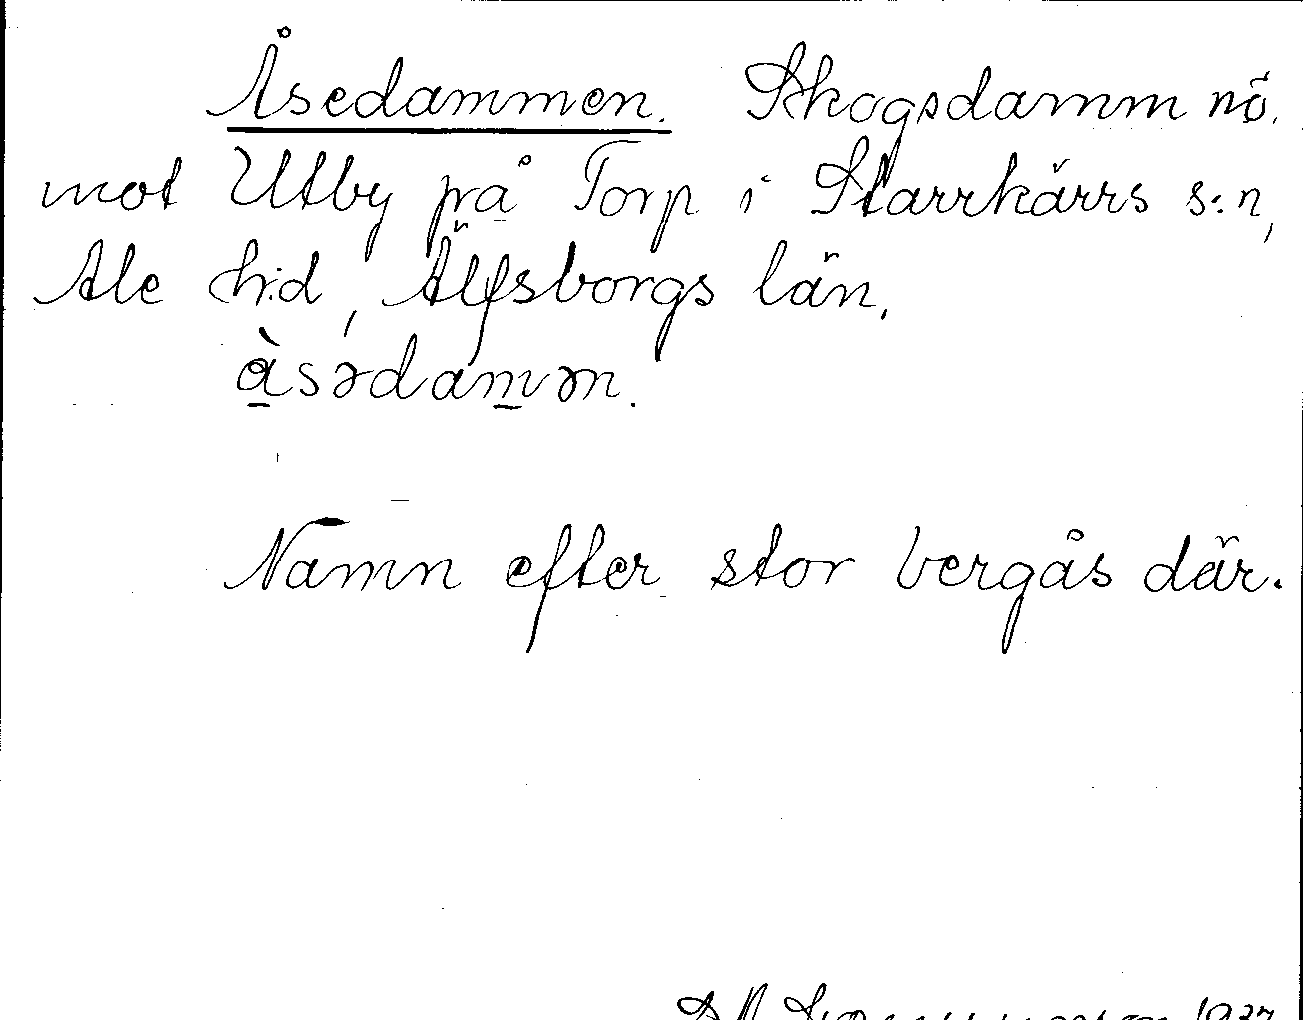 Åsedammen. Skogsdamm nö.
mot Utby på Torp i Starrkärrs s:n,
Ale h:d, Älfsborgs län.
å̀sədam̲ən.
Namn efter stor bergås där.